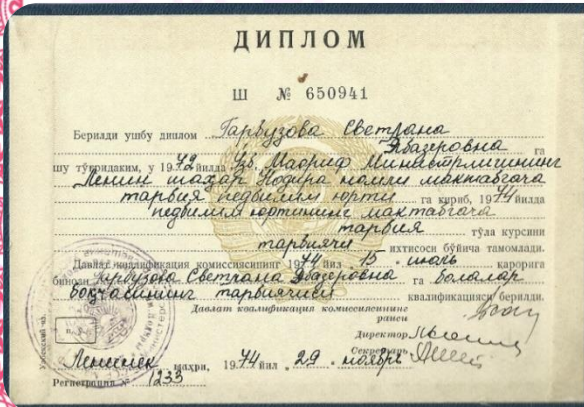 ДИПЛОМ
Ш № 650941
Берилди ушбу диплом Гарбузова Светрана
га
шу тўғридаким, у 1972 йилда Ўзб. Маориф Министрлигининг
Ленин Нодира номли мактабгача
тарбия педбилим юрти га кириб, 1974 йилда
педбилим юртининг мактабгача
тарбия тўла курсини
тарбиячи ихтисоси бўйича тамомлади.
Давлат квалификация комиссиясининг 1974 йил 15 июль қарорига
биноан Гарбузова Светлана га болалар
боғчасининг тарбиячиси квалификацияси берилди.
Давлат квалификация комиссиясининг
раиси
Директор
Секретарь
Ленинск шаҳри, 1974 йил 29 ноябрь
Регистрация № 1233